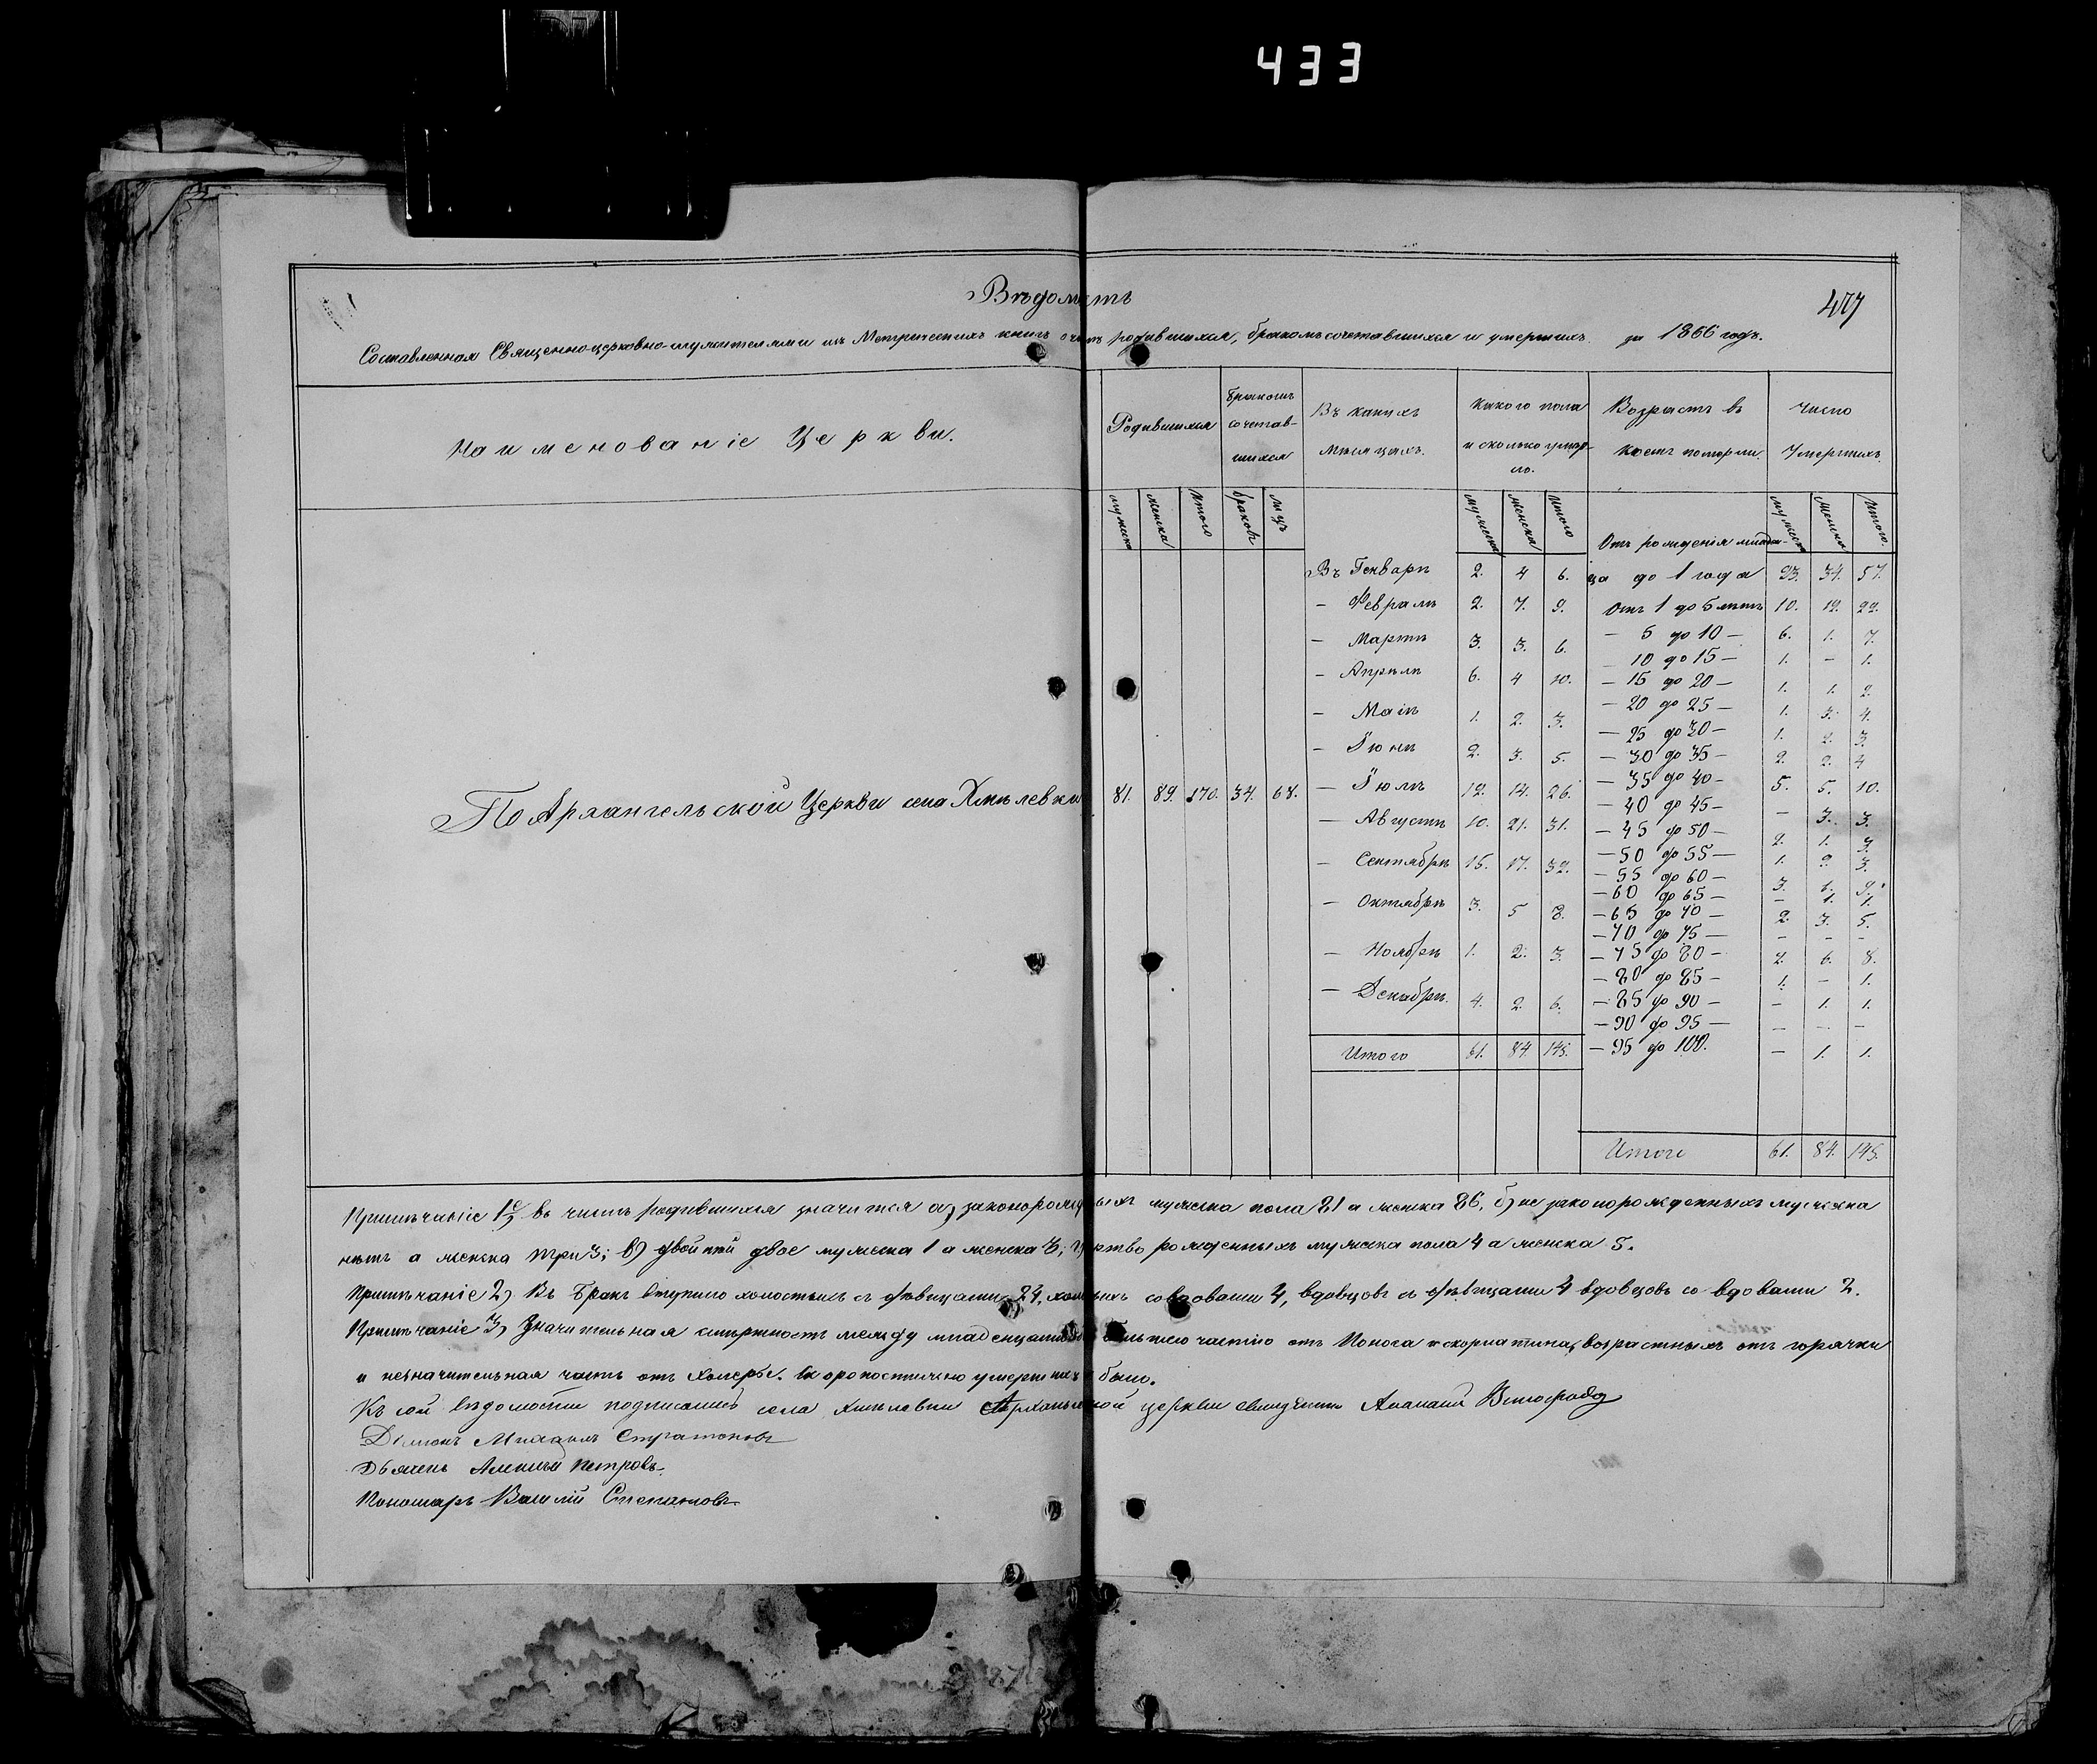 433
Вѣдомость
477
Составленная Священноцерковно-служителями изъ Метрическихъ книгъ о родившихся, бракомъ сочетавшихся и умершихъ за 1866 годъ.
Наименованіе Церкви.
Родившихся
Бракомъ сочетав- шихся
Въ какихъ Мѣсяцахъ.
Какого пола и сколько умер- ло.
Возрастъ въ коемъ померли.
Число Умершихъ.
мужеска женска Итого браковъ лицъ мужеска женска Итого мужеска Женска Итого.
Отъ рожденія младен-
Въ Генварѣ 2. 4 6. ца до 1 года 23. 34. 57.
– Февралѣ 2. 7. 9. Отъ 1 до 5 лѣтъ 10. 12. 22.
– Мартѣ 3. 3. 6. – 5 до 10 – 6. 1. 7.
– 10 до 15 – 1. – 1.
– Апрѣлѣ 6. 4 10. – 15 до 20 – 1. 1. 2.
– Маіѣ 1. 2. 3. – 20 до 25 – 1. 3. 4.
– 25 до 30 – 1. 2. 3.
– Іюнѣ 2. 3. 5. – 30 до 35 – 2. 2. 4
По Архангельской Церкви села Хмѣлевки 81. 89. 170. 34. 68. – Іюлѣ 12. 14. 26. – 35 до 40 – 5. 5. 10.
– 40 до 45 – – 3. 3.
– Августѣ 10. 21. 31. – 45 до 50 – 2. 1. 3.
– 50 до 55 – 1. 2. 3.
– Сентябрѣ 15. 17. 32. – 55 до 60 – 3. 6. 9.
– 60 до 65 – – 1. 1.
– Октябрѣ 3. 5 8. – 65 до 70 – 2. 3. 5.
– 70 до 75 – – – –
– Ноябрѣ 1. 2. 3. – 75 до 80 – 2. 6. 8.
– 80 до 85 – 1. – 1.
– Декабрѣ. 4. 2. 6. – 85 до 90 – – 1. 1.
– 90 до 95 – – – –
Итого 61. 84. 145. – 95 до 100. – 1. 1.
Итого 61. 84. 145.
Примѣчаніе 1е) въ числѣ родившихся значится а) законорожд ыхъ мужеска пола 81 а женска 86, б) не законорожденныхъ мужеска
нѣтъ а женска три 3; в) двойни двое мужеска 1 а женска 3; рожденныхъ мужеска пола 4 а женска 5.
Примѣчаніе 2) Въ Бракъ вступило холостыхъ съ дѣвицами 24, хол ыхъ со вдовами 4, вдовцовъ съ дѣвицами 4 вдовцовъ со вдовами 2.
Примѣчаніе 3) Значительная смертность между младенцами большею частію отъ Поноса и скорлатина, возрастныхъ отъ горячки
и незначительная часть отъ Холеры. Скоропостижно умершихъ было.
Къ сей вѣдомости подписались села Хмѣлевки Архангельской церкви священникъ Виноградо
Діаконъ Михаилъ Стратоновъ
Дьячекъ Алексѣй Петровъ.
Пономарь Василій Степановъ.